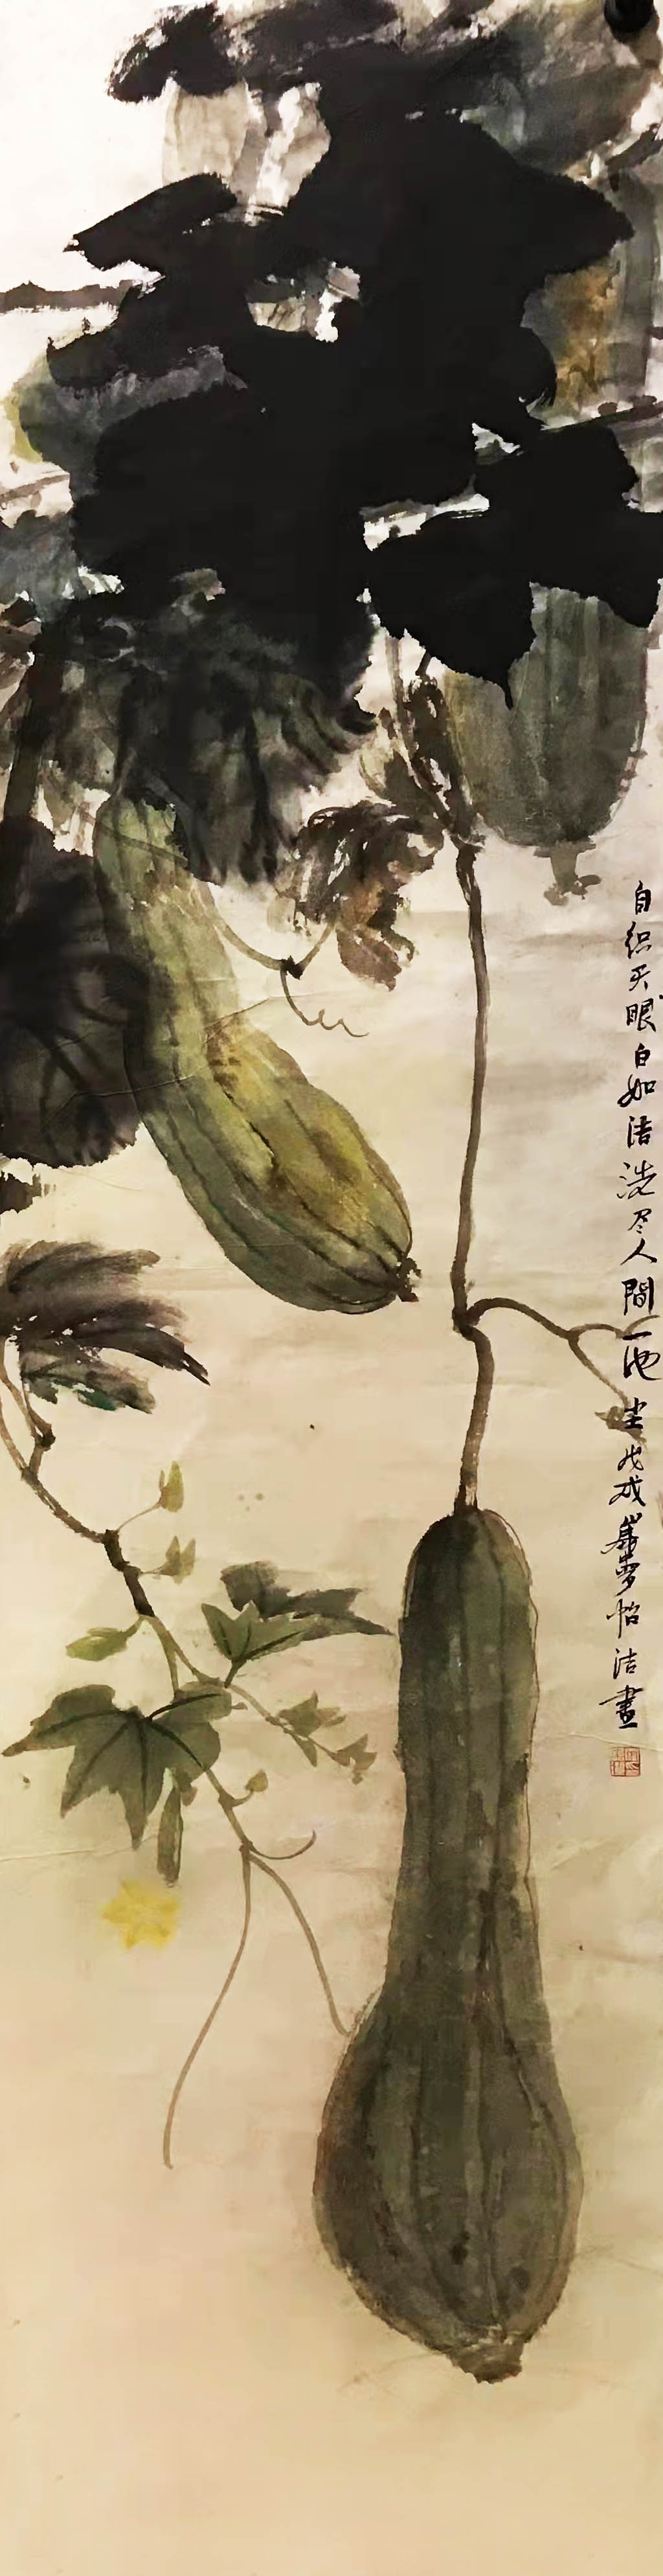 自织天眼白如洁洗尽人間一池尘戊戌夢怡洁畫